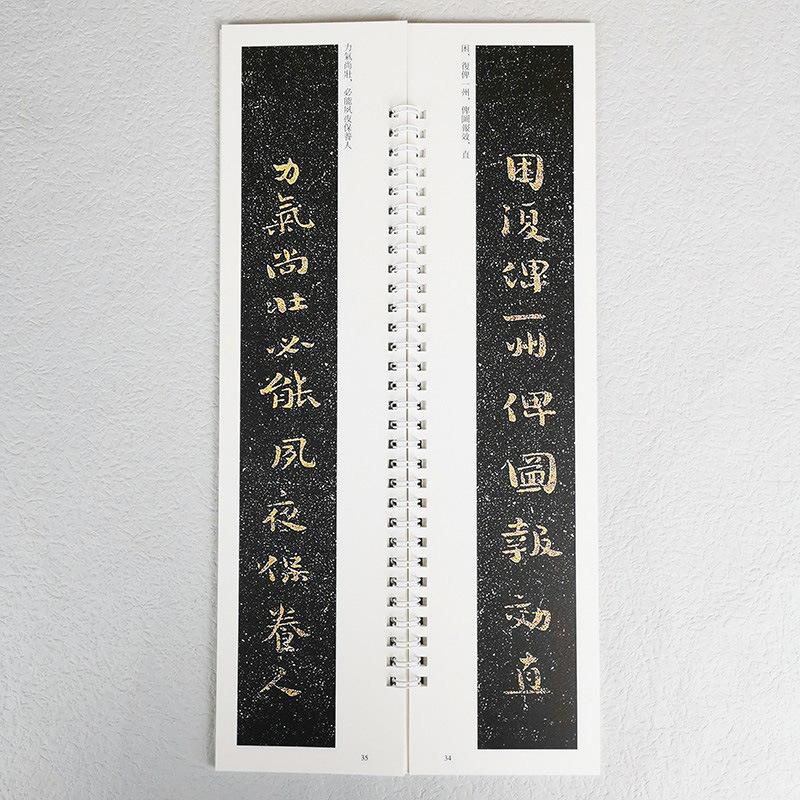 困、復俾一州、俾圖報效。直
困復俾一州俾圖報効直
34
力氣尚壯，必能夙夜保養人
力氣尚壯必能夙夜保養人
35